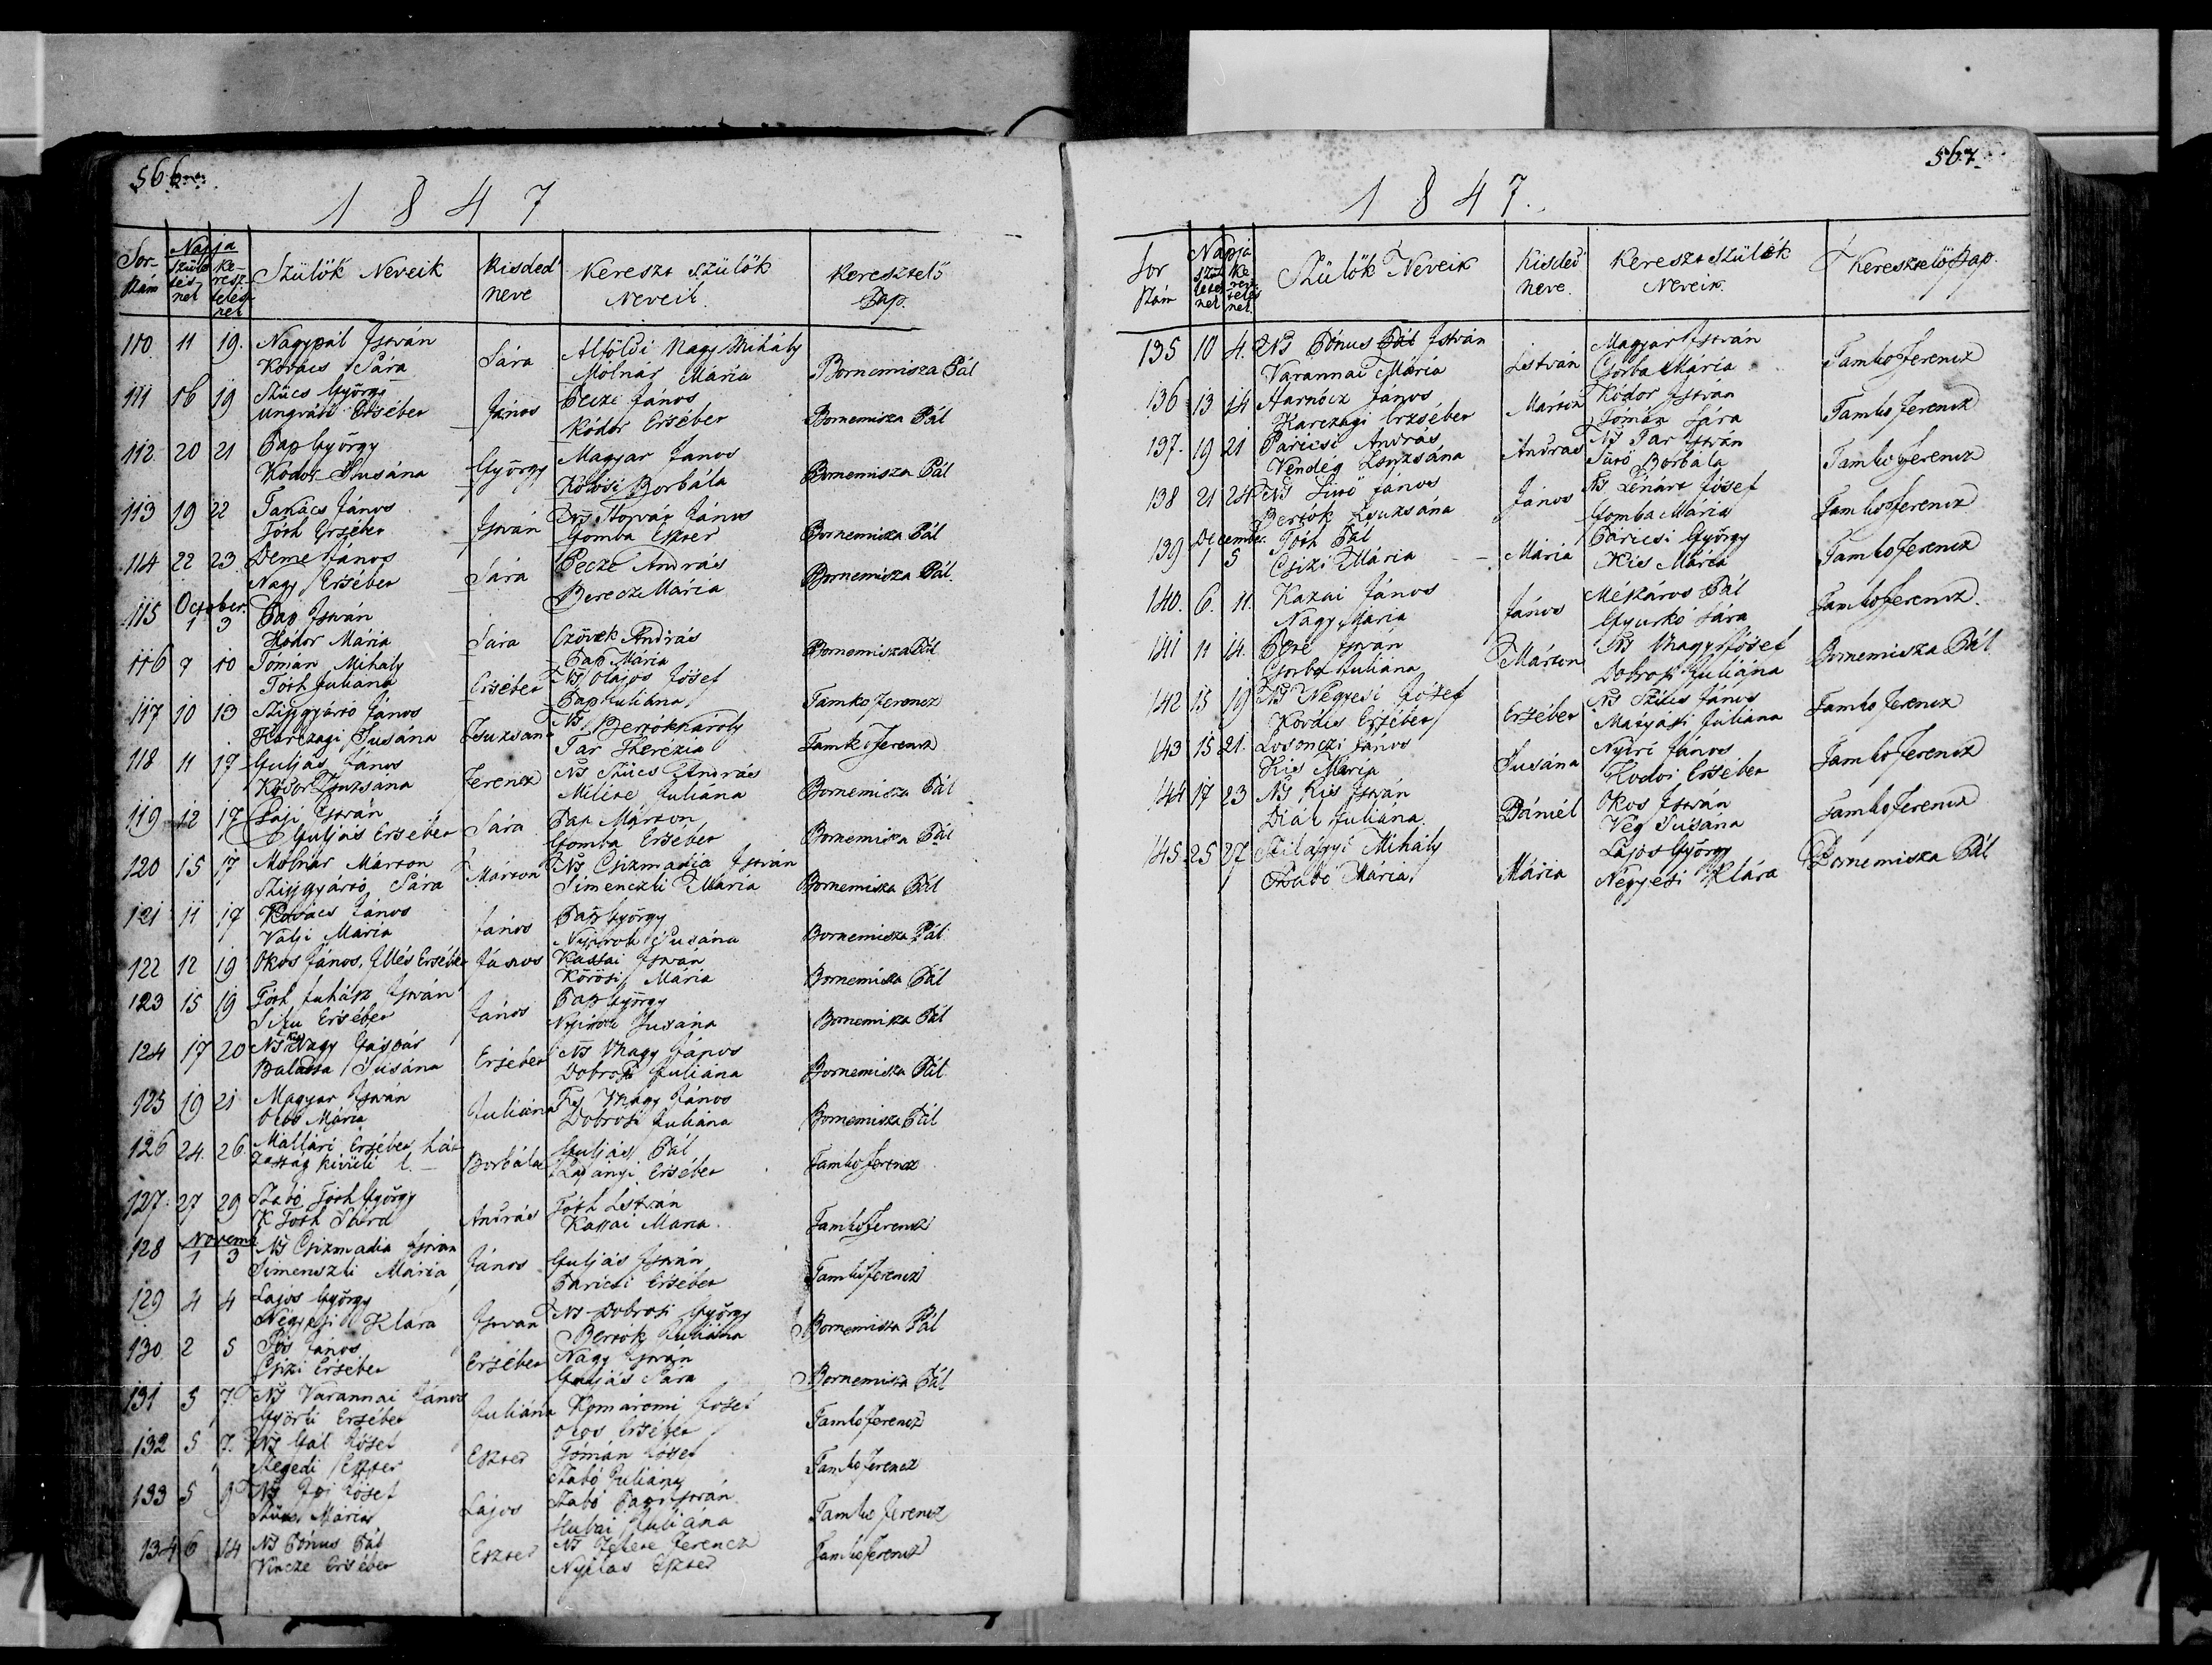 566
1 8 4 7
Sor-szám Napja születésnek keresztelésnek Szülők Neveik Kisded neve Kereszt szülők Neveik Keresztelő Pap.
110 11 19. Nagypál István Kovács Sára Sára Alföldi Nagy Mihály Molnar Mária Bornemisza Pál
111 16 19 Szücs György Ungvári Ersébet János Pecze János Kódor Ersébet Bornemisza Pál
112 20 21 Pap György Kodor Susána György Magyar Janos Körösi Borbála Bornemisza Pál
113 19 22 Takács János Tóth Ersébet István Ns János Gomba Eszter Bornemisza Pál
114 22 23 Deme János Nagy Ersébet Sára Pecze András Berecz Mária Bornemisza Pál
October.
115 1 3 Pap István Hódor Mária Sára András Pap Mária Bornemisza Pál
116 7 10 Tómán Mihály Tóth Juliána Ersébet Ns Olajos Jósef Pap Juliána Tamko Ferencz
117 10 13 Szijgyártó János Karczagi Susána Zsuzsana Ns Bertók Károly Tar Therézia Tamko Ferencz
118 11 17 Guljás Janos Kódor Zsuzsána Ferencz Ns Szücs András Milite Juliána Bornemisza Pál
119 12 17 István Guljás Ersébet Sára Pap Márton Gomba Ersébet Bornemisza Pál
120 15 17 Molnár Márton Szijgyártó Sára Márton Ns Csizmadia István Simenszki Mária Bornemisza Pál
121 11 17 Kovács János Valji Mária János Pap György Susána Bornemisza Pál
122 12 19 Okos János, Illés Ersébet János Kassai István Körösi Mária Bornemisza Pál
123 15 19 Tóth Juhász István Ersébet János Pap György Susána Bornemisza Pál
124 17 20 Ns Nagy Gáspár Balassa Susána Ersébet Ns Nagy János Dobrosi Juliána Bornemisza Pál
125 19 21 Magyar István Mária Juliána Nagy János Dobrosi Juliána Bornemisza Pál
126 24. 26. Mallári Ersébet házasság kivüli l. Borbála Guljás Pál Ladányi Ersébet Tamko Ferencz
127. 27 29 Szabó Tóth György K Tóth Sára András Tóth István Kassai Mária Tamko Ferencz
Novemb
128 1 3 Ns Csizmadia István Simenszki Mária János Guljás István Paricsi Ersébet Tamko Ferencz
129 4 4 Lajos György Negyesi Klára István Ns Dobrosi György Bertók Juliána Bornemisza Pál
130 2 5 János Csizi Ersébet Ersébet Nagy István Guljás Sára Bornemisza Pál
131 5 7. Ns Varannai János Györfi Ersébet Juliána Komáromi Jósef Ersébet Tamko Ferencz
132 5 7. Ns Gál Jósef Szegedi Eszter Eszter Tómán Jósef Szabó Juliána Tamko Ferencz
133 5 9 Ns Jósef Szücs Mária Lajos Szabó Pap István Hubai Juliána Tamko Ferencz
134 6 14 Ns Pónus Pál Vincze Ersébet Eszter Ns Fekete Ferencz Nyilas Eszter Tamko Ferencz
567
1 8 4 7.
Sor szám Napja születésnek keresztelésnek Szülők Neveik Kisded neve. Kereszt szülék Neveik. Keresztelő Pap.
135 10 4. Ns Pónus István Varannai Mária István Magyar István Csorba Mária Tamko Ferencz
136 13 14 Harnócz János Karczagi Erzsébet Márton Kódor István Tómán Sára Tamko Ferencz
137. 19 21 Paricsi András Vendég Zsuzsána András Ns Tar István Borbála Tamko Ferencz
138 21 24 Ns János Bertók Zsuzsána János Ns Lénárt Jósef Gomba Mária Tamko Ferencz
December.
139 1 5 Tóth Pál Csizi Mária Mária Paricsi György Kis Mária Tamko Ferencz
140. 6. 11. Kazai János Nagy Mária János Mészáros Pál Gyurkó Sára Tamko Ferencz.
141 11 14. István Csorba Juliána Márton Ns Nagy Jósef Dobrosi Juliána Bornemisza Pál
142 15 19 Ns Négyesi Jósef Kovács Ersébet Ersébet Ns Szücs János Juliána Tamko Ferencz
143 15 21. Losonczi János Kis Mária Susána Nyíri János Hodos Ersébet Tamko Ferencz
144 17 23 Ns Kis István Diák Juliána Dániel Okos István Vég Susána Tamko Ferencz
145 25 27 Szilágyi Mihály Szabó Mária Mária Lajos György Négyesi Klára Bornemisza Pál